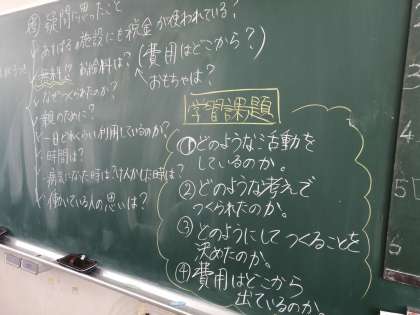 疑問に思ったこと
あそばる施設にも税金が使われている!
無料!? お給料は? (費用はどこから?)
おもちゃは?
なぜつくられたのか?
親のために?
一日どれくらい利用しているのか?
時間は?
病気になった時は?けがした時は?
働いている人の思いは?
学習課題
①どのような活動を
しているのか。
②どのような考えで
つくられたのか。
③どのようにしてつくることを
決めたのか。
④費用はどこから
出ているのか。
4
5
6